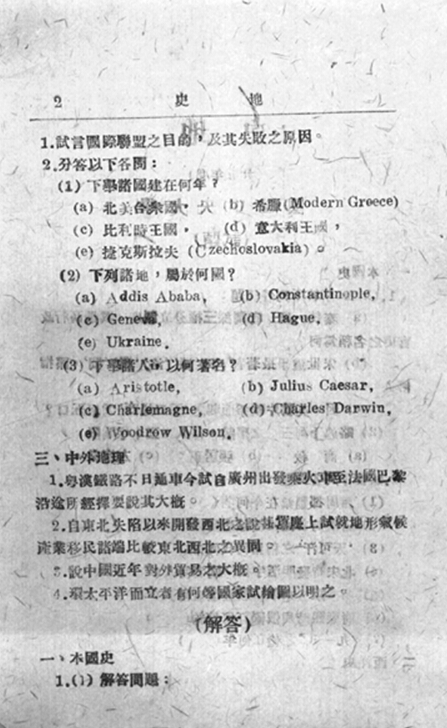 2 史 地
1.試言國際聯盟之目的,及其失敗之原因。
2.分答以下各問:
(1) 下舉諸國建在何年?
(a) 北美合衆國, (b) 希臘(Modern Greece)
(c) 比利時王國, (d) 意大利王國,
(e) 捷克斯拉夫 (Czechoslovakia)。
(2) 下列諸地,屬於何國?
(a) Addis Ababa, (b) Constantinople,
(c) Geneva, (d) Hague,
(e) Ukraine,
(3) 下舉諸人,以何著名?
(a) Aristotle, (b) Julius Caesar,
(c) Charlemagne, (d) Charles Darwin,
(e) Woodrow Wilson,
三、中外地理
1.粤漢鐵路不日通車今試自廣州出發乘火車至法國巴黎
沿途所經擇要說其大槪。
2.自東北失陷以來開發西北之說甚囂塵上試就地形氣候
產業移民諸端比較東北西北之異同。
3.說中國近年對外貿易之大槪。
4.環太平洋而立者有何等國家試繪圖以明之。
(解答)
一、本國史
1.(1) 解答問題: